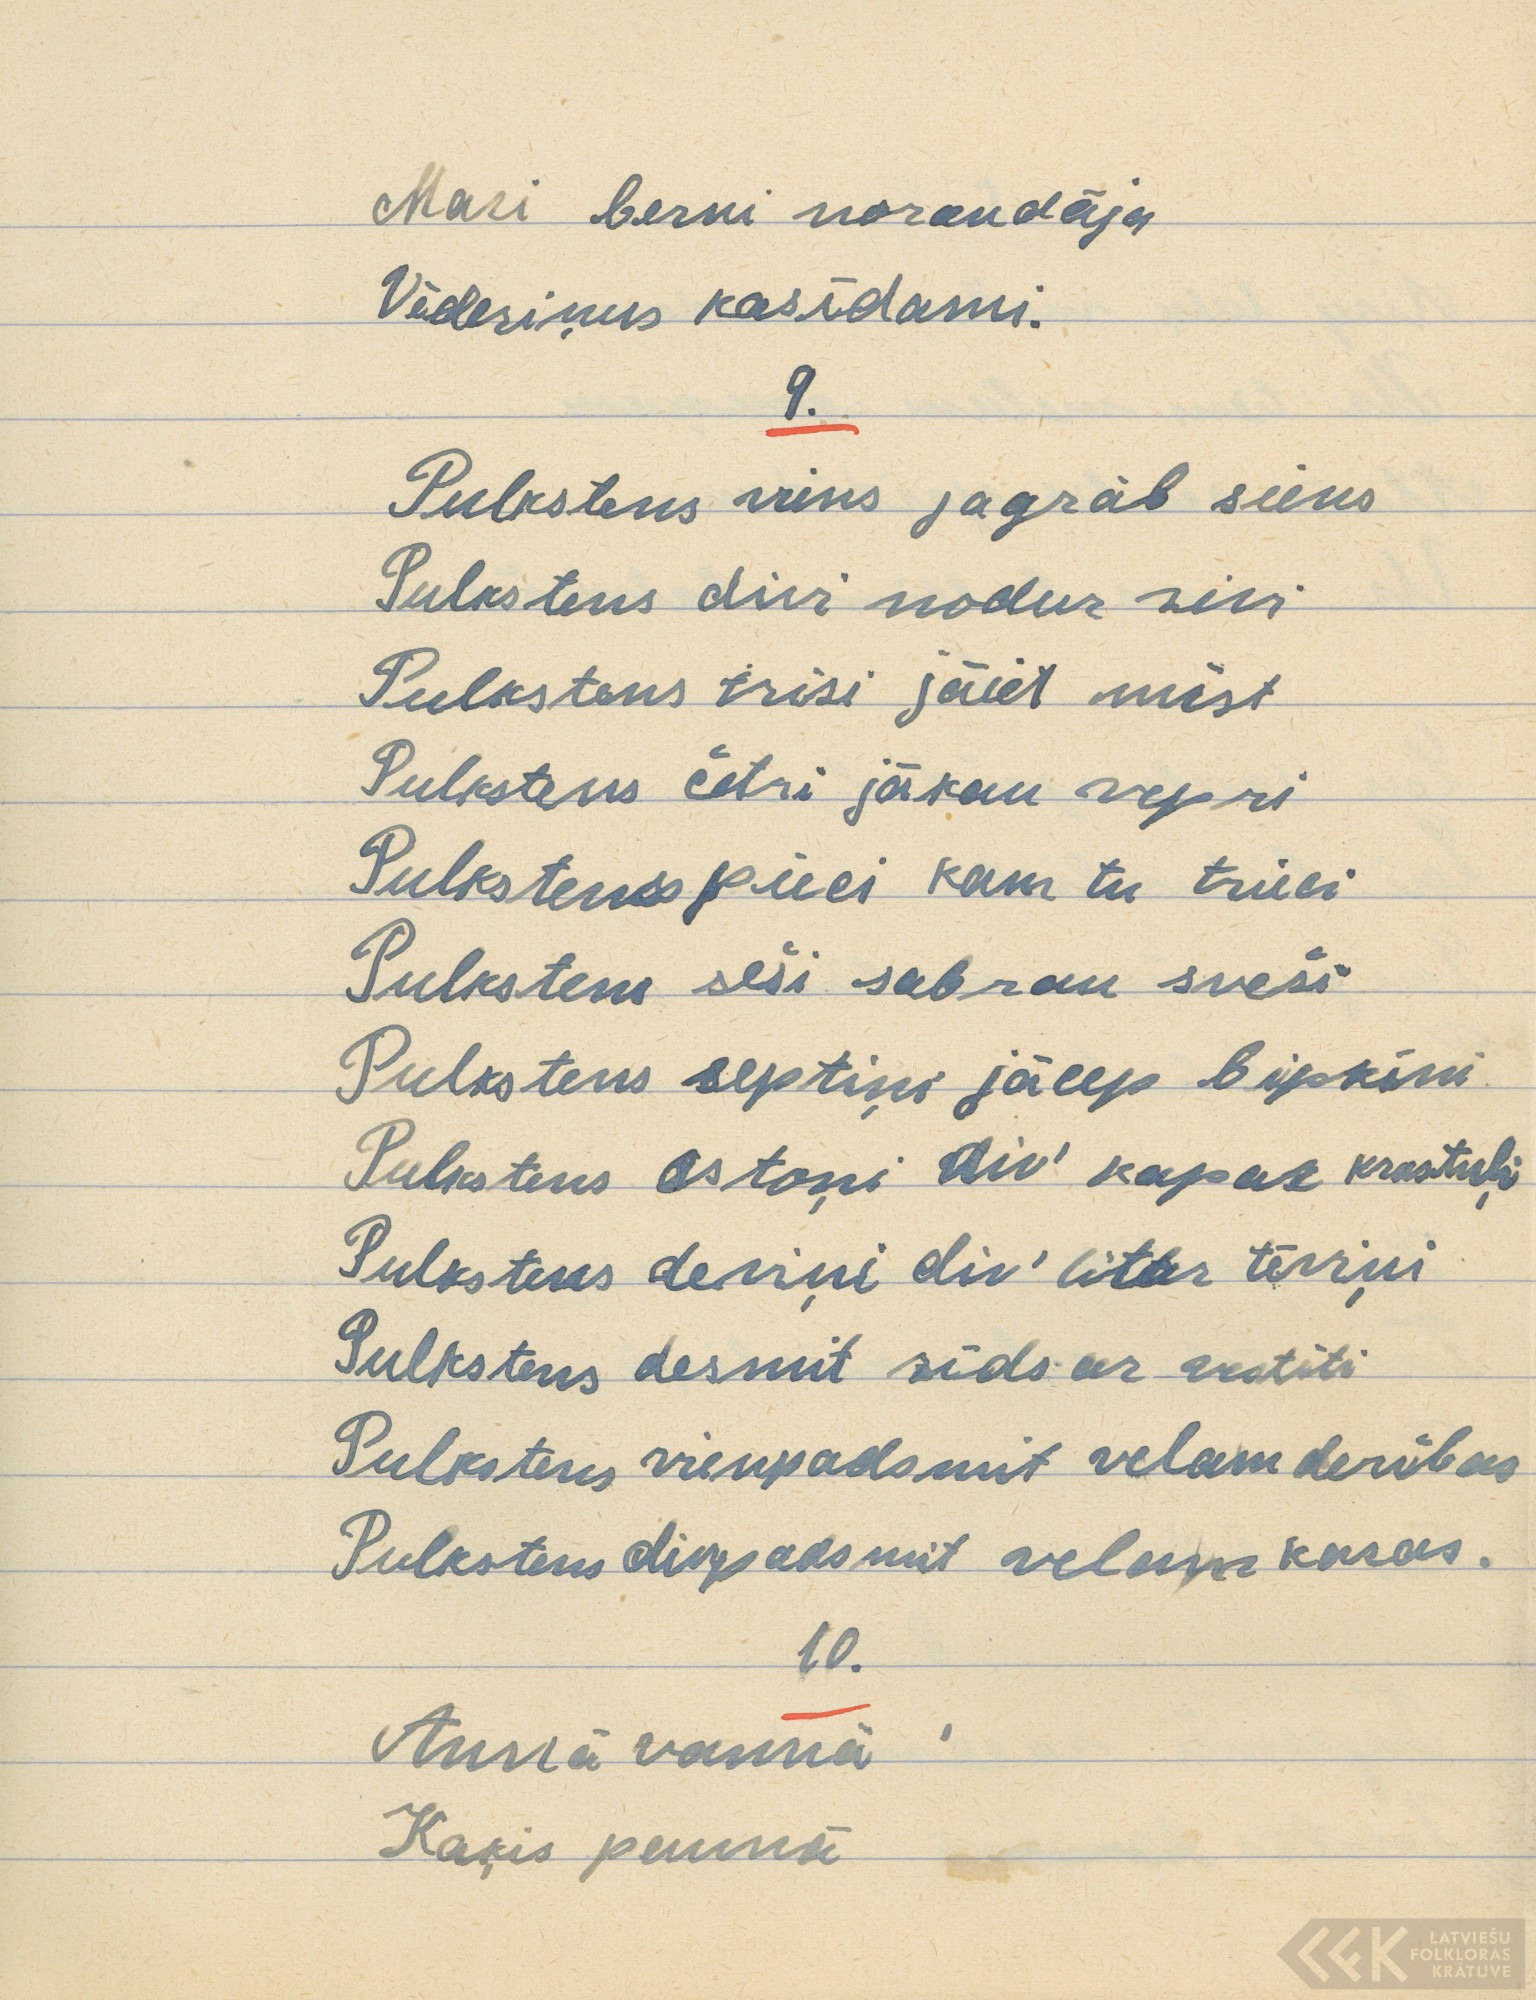 Mazi berni noraudāja
Vēderiņus kasīdami.
9.
Pulkstens viens jagrāb siens
Pulkstens divi nodur zivi
Pulkstens trīsi jāiet mīst
Pulkstens četri jākau vepri
Pulkstens pieci kam tu trieci
Pulkstens seši sabrau sveši
Pulkstens septiņi jācep bipkini
Pulkstens astoņi div' kapaz krastuļi
Pulkstens deviņi div' litar tēviņi
Pulkstens desmit zids ar
Pulkstens vienpadsmit velam derības
Pulkstens divpadsmit velam kazas.
10.
Annā vannā
Kaķis pannā
LATVIEŠU
FOLKLORAS
KRĀTUVE